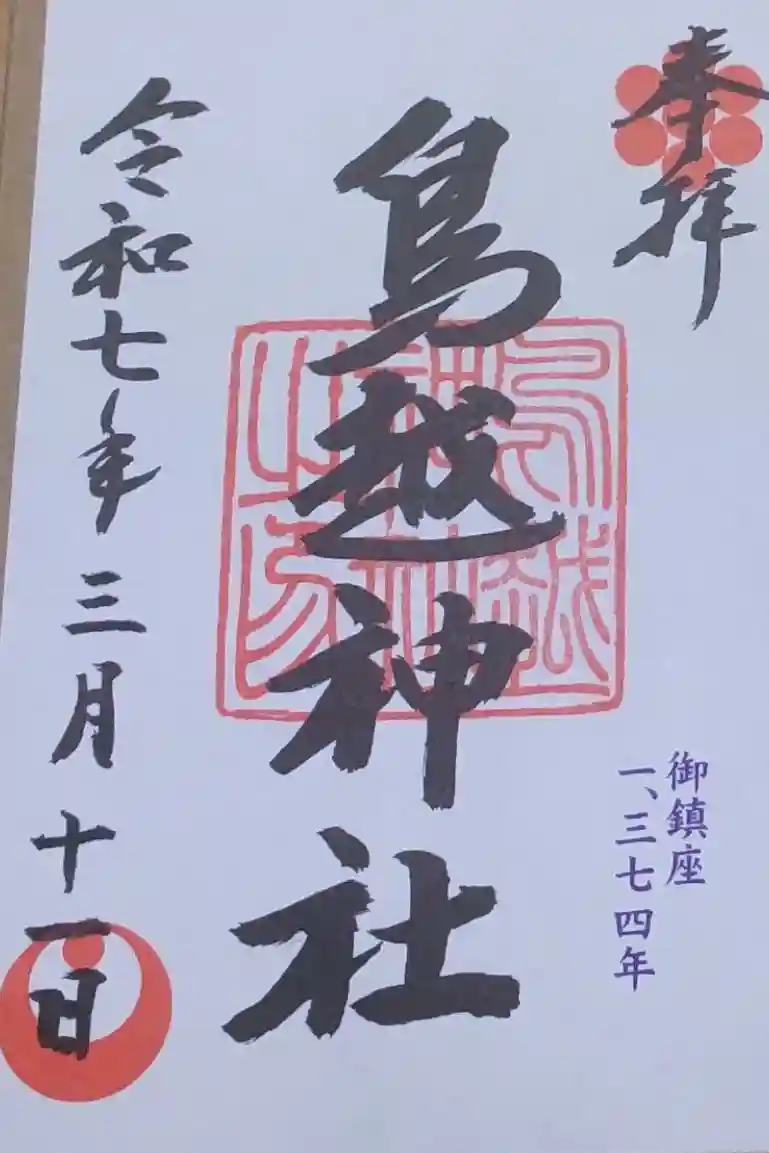 奉拝
御鎮座
一、三七四年
鳥越神社
令和七年三月十一日